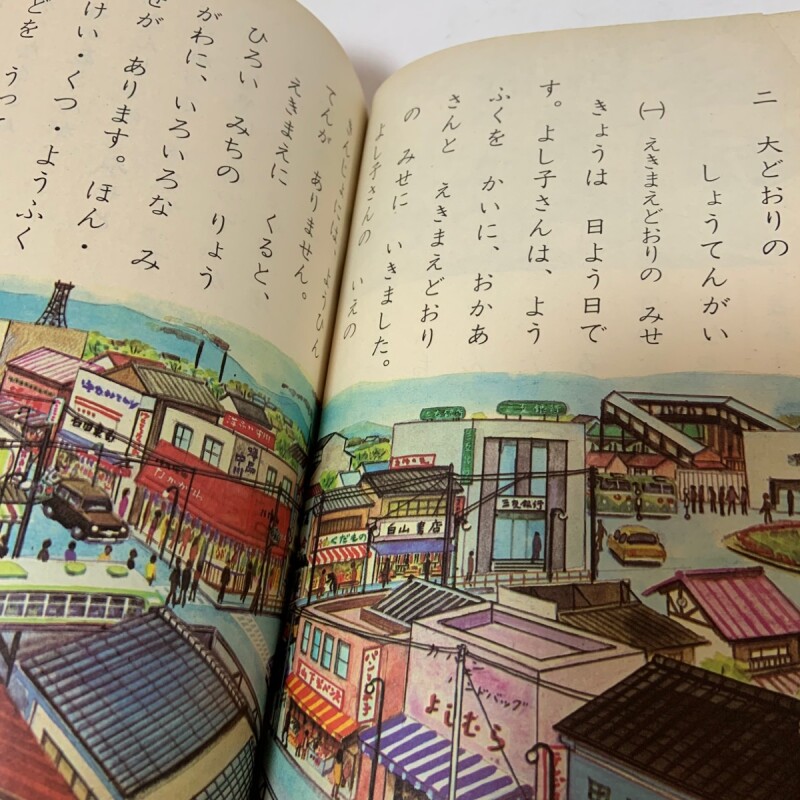 二 大どおりの
しょうてんがい
㈠ えきまえどおりの みせ
きょうは 日よう日で
す。よし子さんは、よう
ふくを かいに、おかあ
さんと えきまえどおり
の みせに いきました。
よし子さんの いえの
きんじょには、ようひん
てんが ありません。
えきまえに くると、
ひろい みちの りょう
がわに、いろいろな み
せが あります。ほん・
けい・くつ・ようふく
どを うって
白山書店
くだもの
カバン
ハンドバッグ
よしむら